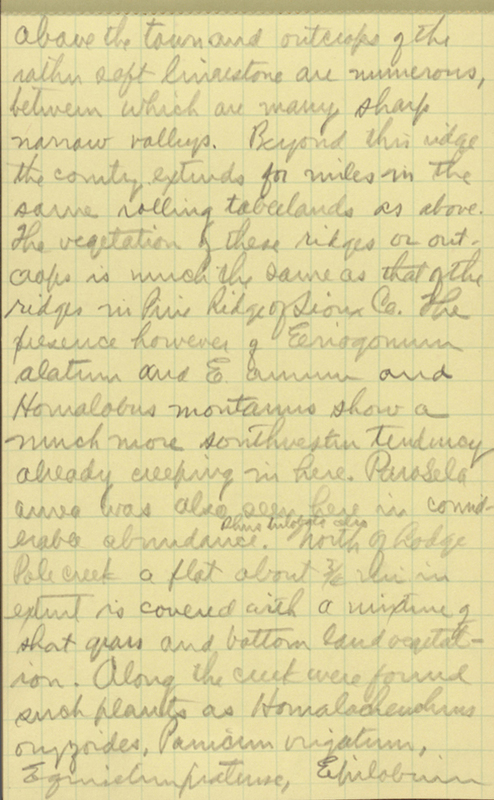 above the town and outcrops of the
rather soft limestone are numerous,
between which are many sharp
narrow valleys. Beyond this ridge
the country extends for miles in the
same rolling tablelands as above.
The vegetation of these ridges or out-
crops is much the same as that of the
ridges in Pine Ridge of Sioux Co. The
presence however of Eriogonum
alatum and E. annuum and
Homalobus montanus show a
much more southwestern tendency
already creeping in here. Parosela
aurea was also seen here in consid-
erable abundance. North of Lodge
Rhus trilobata also
Pole creek a flat about 3/4 mi in
extent is covered with a mixture of
short grass and bottom land vegetat-
ion. Along the creek were found
such plants as Homalocenchrus
oryzoides, Panicum virgatum,
Equisetum pratense, Epilobium